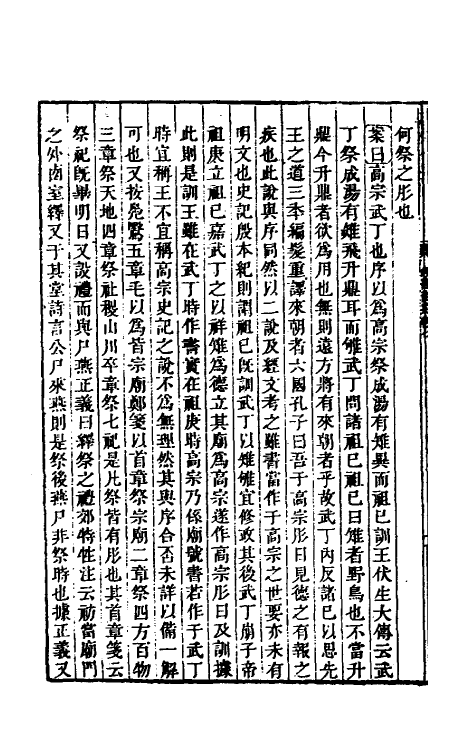 何祭之肜也
案曰高宗武丁也序以爲高宗祭成湯有雉異而祖已訓王伏生大傳云武
丁祭成湯有雉飛升鼎耳而雊武丁問諸祖已祖已曰雉者野鳥也不當升
鼎今升鼎者欲爲用也無則遠方將有來朝者乎故武丁內反諸已以思先
王之道三季編髮重譯來朝者六國孔子曰吾于高宗肜日見德之有報之
疾也此說與序同然以二說及經文考之雖書當作于高宗之世要亦未有
明文也史記殷本紀則謂祖已既訓武丁以雉雊宜修政其後武丁崩子帝
祖庚立祖已嘉武丁之以祥雉爲德立其廟爲高宗遂作高宗肜日及訓據
此則是訓王雖在武丁時作書實在祖庚時高宗乃係廟號書若作于武丁
時宜稱王不宜稱高宗史記之說不爲無理然其與序合否未詳以備一解
可也又按鳧鷖五章毛以爲皆宗廟鄭箋以首章祭宗廟二章祭四方百物
三章祭天地四章祭社稷山川卒章祭七祀是凡祭皆有肜也其首章箋云
祭祀既畢明日又設禮而與尸燕正義曰繹祭之禮郊特牲注云祊當廟門
之外西室繹又于其堂詩言公尸來燕則是祭後燕尸非祭時也據正義又